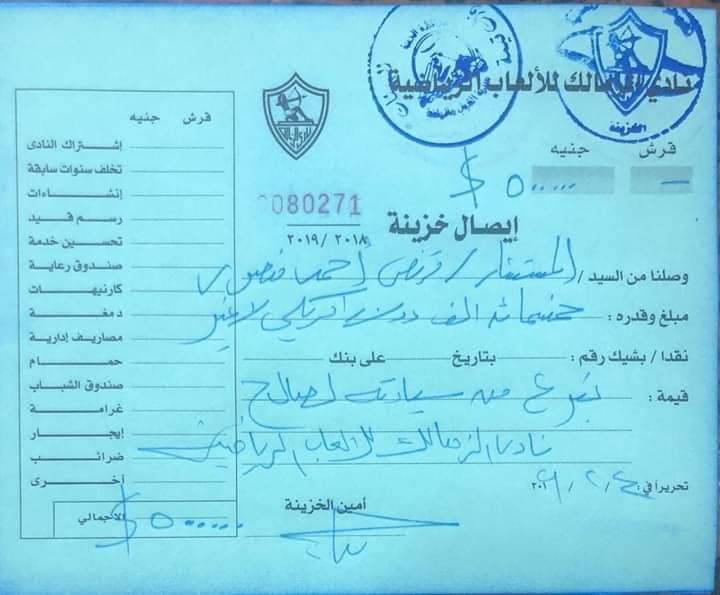 نادي الزمالك للألعاب الرياضية
الخزينة
قرش جنيه
$ ٥٠٠٠٠٠ —
080271
٢٠١٨ / ٢٠١٩
إيصال خزينة
وصلنا من السيد / المستشار / مرتضى احمد منصور
مبلغ وقدره : خمسمائة الف دولار امريكي لاغير
نقدا / بشيك رقم : بتاريخ على بنك
قيمة : تبرع من سيادته لصالح
نادى الزمالك للألعاب الرياضية
تحريرا في
أمين الخزينة
قرش جنيه
إشتراك النادى
تخلف سنوات سابقة
إنشاءات
رسم قيد
تحسين خدمة
صندوق رعاية
كارنيهات
دمغة
مصاريف إدارية
حمام
صندوق الشباب
غرامة
إيجار
ضرائب
أخرى
الاجمالي $ ٥٠٠٠٠٠